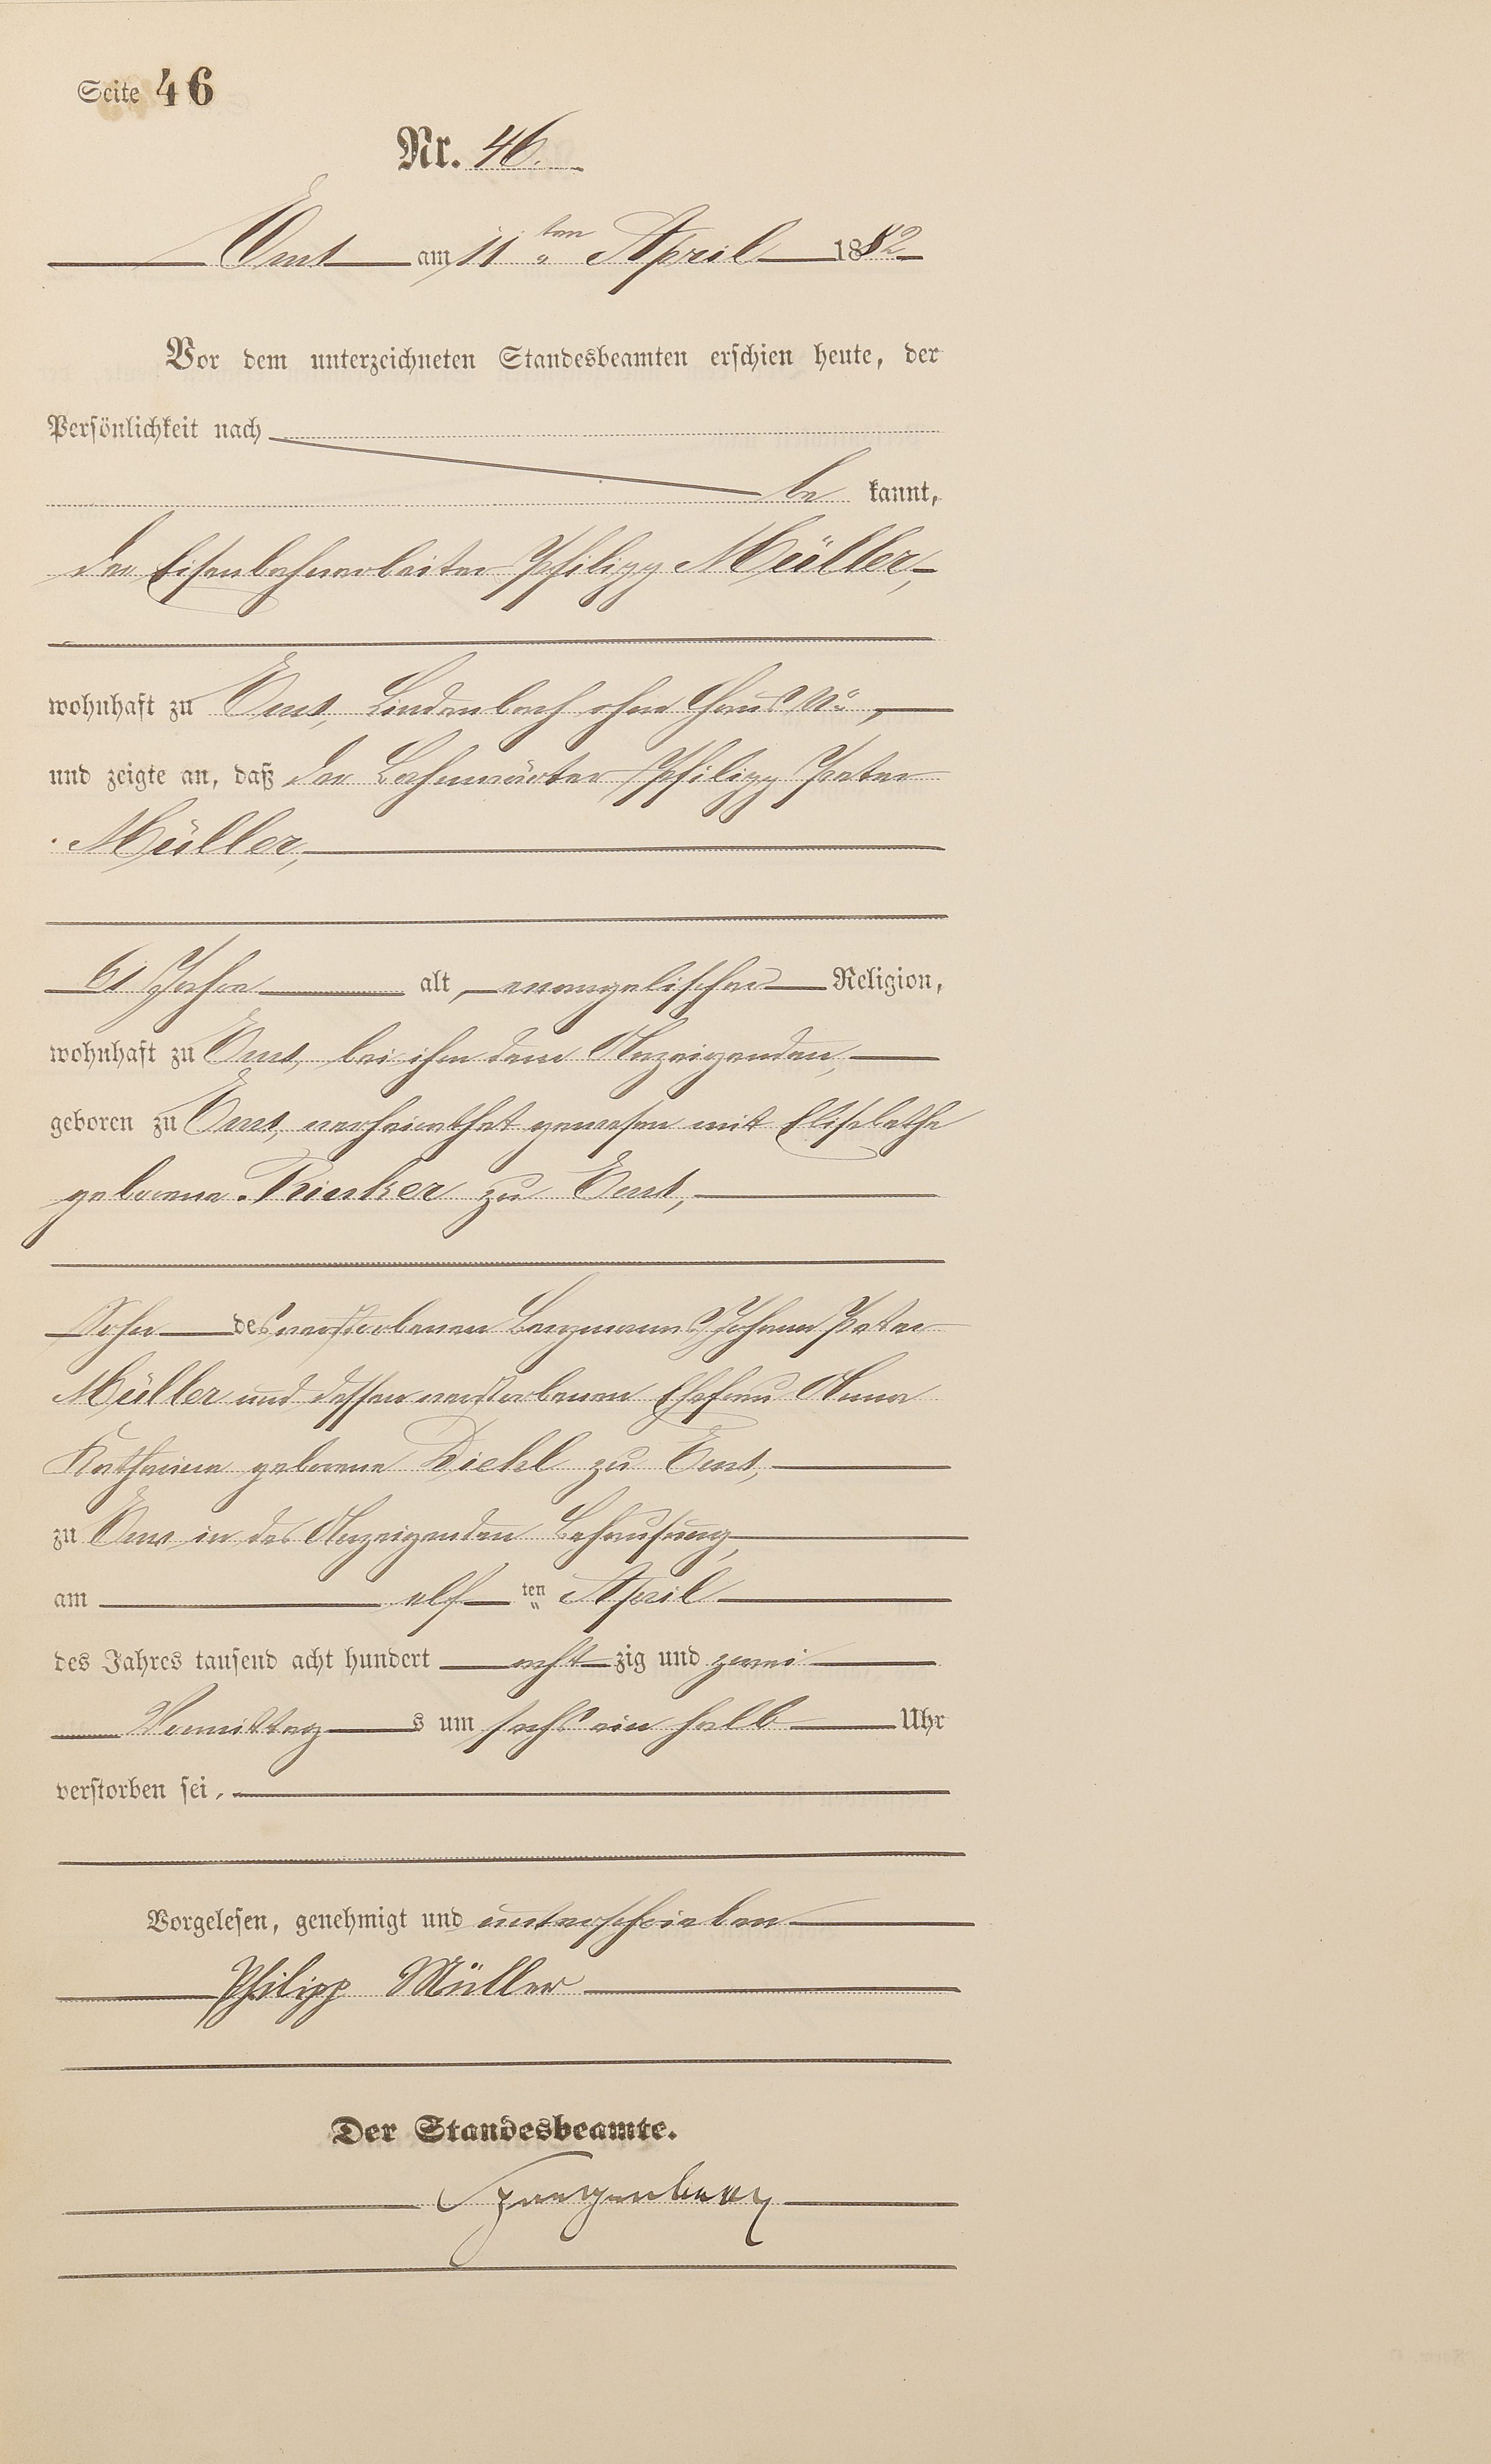 Seite 46
Nr. 46.
Ems am 11ten April 1882
Vor dem unterzeichneten Standesbeamten erschien heute, der
Persönlichkeit nach
be kannt,
der Eisenbahnarbeiter Philipp Müller,
wohnhaft zu Ems, Lindenbach ohne Haus No,
und zeigte an, daß der Bahnwärter Philipp Peter
Müller,
61 Jahre alt, evangelischer Religion,
wohnhaft zu Ems, bei ihm dem Anzeigenden,
geboren zu Ems, verheirathet gewesen mit Elisabethe
geborene Rinker zu Ems,
Sohn des verstorbenen Bergmanns Johann Peter
Müller und dessen verstorbenen Ehefrau Anna
Katharina geborene Diehl zu Ems,
zu Ems in des Anzeigenden Behausung,
am elf ten April
des Jahres tausend acht hundert acht zig und zwei
Vormittag s um sechs ein halb Uhr
verstorben sei.
Vorgelesen, genehmigt und unterschrieben
Philipp Müller
Der Standesbeamte.
Spangenberg